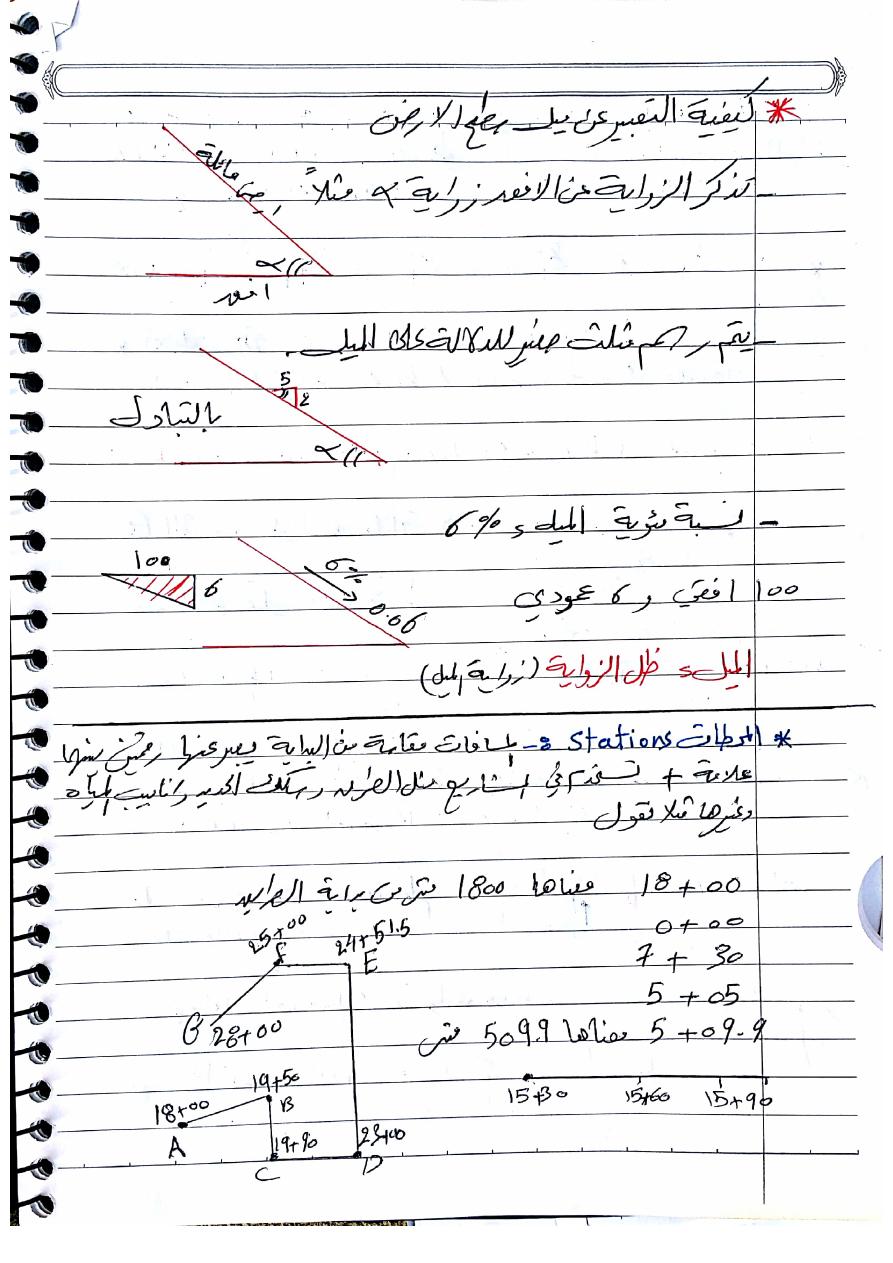 * كيفية التعبير عن ميل سطح الارض
- تذكر الزواية عن الافق زواية α مثلاً
ارض مائلة
α
افق
- يتم رسم مثلث صغير للدلالة على الميل.
5
2
بالتبادل
α
- نسبة مئوية الميل 6%
100
6
6%
0.06
100 افقي و 6 عمودي
الميل = ظل الزواية (زواية الميل)
* المحطات Stations :- مسافات مقاسة من البداية يعبر عنها رقمين بينها
علامة + تستخدم في المشاريع مثل الطرق وسكك الحديد وانابيب المياه
وغيرها مثلا نقول
18+00 معناها 1800 متر من بداية الطريق
0+00
7+30
5+05
5+09.9 معناها 509.9 متر
25+00
F
24+51.5
E
G 28+00
15+30
15+60
15+90
19+50
B
18+00
A
19+90
C
23+00
D